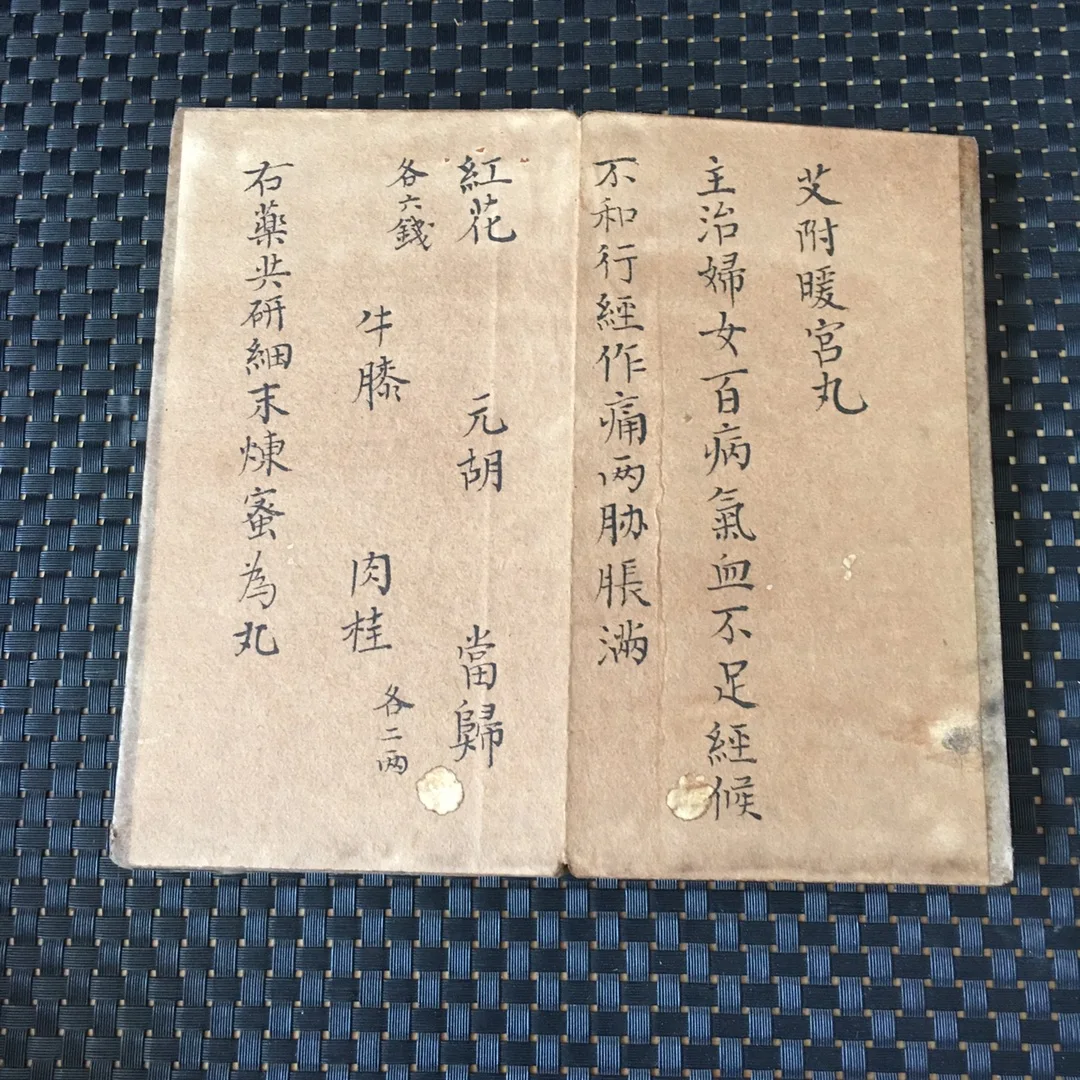 艾附暖宮丸
主治婦女百病氣血不足經候
不和行經作痛兩脅脹滿
紅花 元胡 當歸
各六錢 牛膝 肉桂 各二兩
右藥共研細末煉蜜為丸